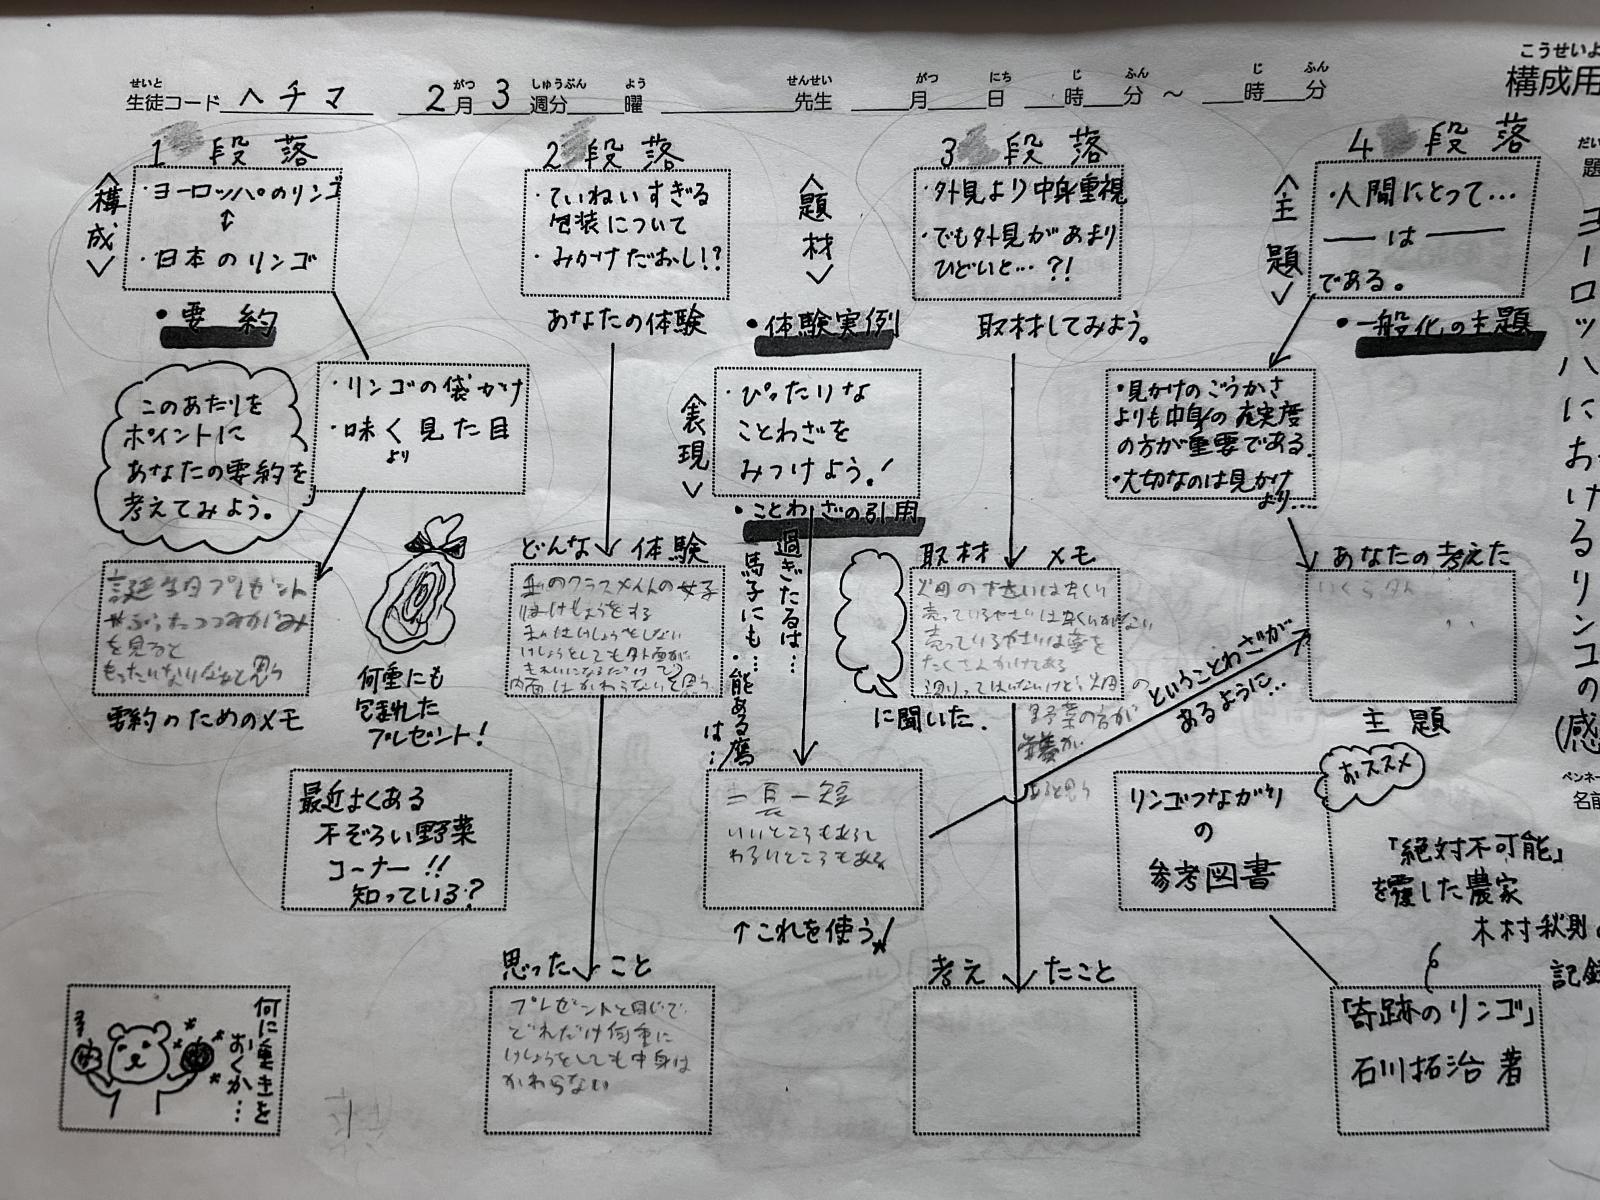 せいと がつ しゅうぶん よう せんせい がつ にち じ ふん じ ふん
生徒コード ヘチマ 2月3週分 曜 先生 月 日 時 分 ～ 時 分
こうせいよ
構成用
1 段落
〈構成〉
・ヨーロッパのリンゴ
↕
・日本のリンゴ
・要約
・リンゴの袋かけ
・味く見た目
より
このあたりを
ポイントに
あなたの要約を
考えてみよう。
誕生日プレゼント
を見ると
もったいないなと思う
要約のためのメモ
何重にも
包まれた
プレゼント!
最近よくある
不ぞろい野菜
コーナー!!
知っている?
何に重きを
おくか…
2 段落
・ていねいすぎる
包装について
・みかけだおし!?
あなたの体験
どんな体験
のクラスメイトの女子
はけしょうをする
けしょうをしても外面が
きれいになるだけで
内面はかわらないと思う
思ったこと
プレゼントと同じで
どれだけ何重に
けしょうをしても中身は
かわらない
〈題材〉
・体験実例
〈表現〉
・ぴったりな
ことわざを
みつけよう!
・ことわざの引用
過ぎたるは…
馬子にも…
・能ある鷹
は…
一長一短
いいところもあるし
わるいところもある
↑これを使う!
3 段落
・外見より中身重視
・でも外見があまり
ひどいと…?!
取材してみよう。
取材メモ
売っているやさいは
売っているやさいは薬を
たくさんかけてある
の
野菜の方が
栄養が
あると思う
に聞いた.
考えたこと
ということわざが
あるように…
4 段落
〈主題〉
・人間にとって…
――は――
である。
・一般化の主題
・見かけのごうかさ
よりも中身の充実度
の方が重要である.
・大切なのは見かけ
より….
あなたの考えた
いくら外
主題
おススメ
リンゴつながり
の
参考図書
「絶対不可能」
を覆した農家
木村秋則
記録
「奇跡のリンゴ」
石川拓治 著
だい
題
ヨーロッハにおけるリンゴの
(感
ペンネー
名前